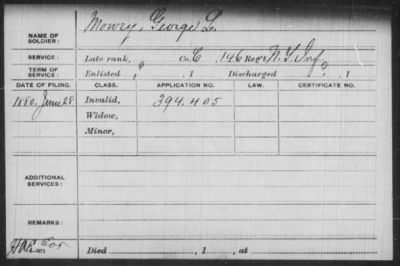 NAME OF SOLDIER: Mowry, George L.
SERVICE: Late rank, Co. C, 146 Reg't N. Y. Inf.
TERM OF SERVICE: Enlisted , 1 Discharged , 1
DATE OF FILING. CLASS. APPLICATION NO. LAW. CERTIFICATE NO.
1880, June 28 Invalid, 394.405
Widow,
Minor,
ADDITIONAL SERVICES:
REMARKS:
Died , 1 , at